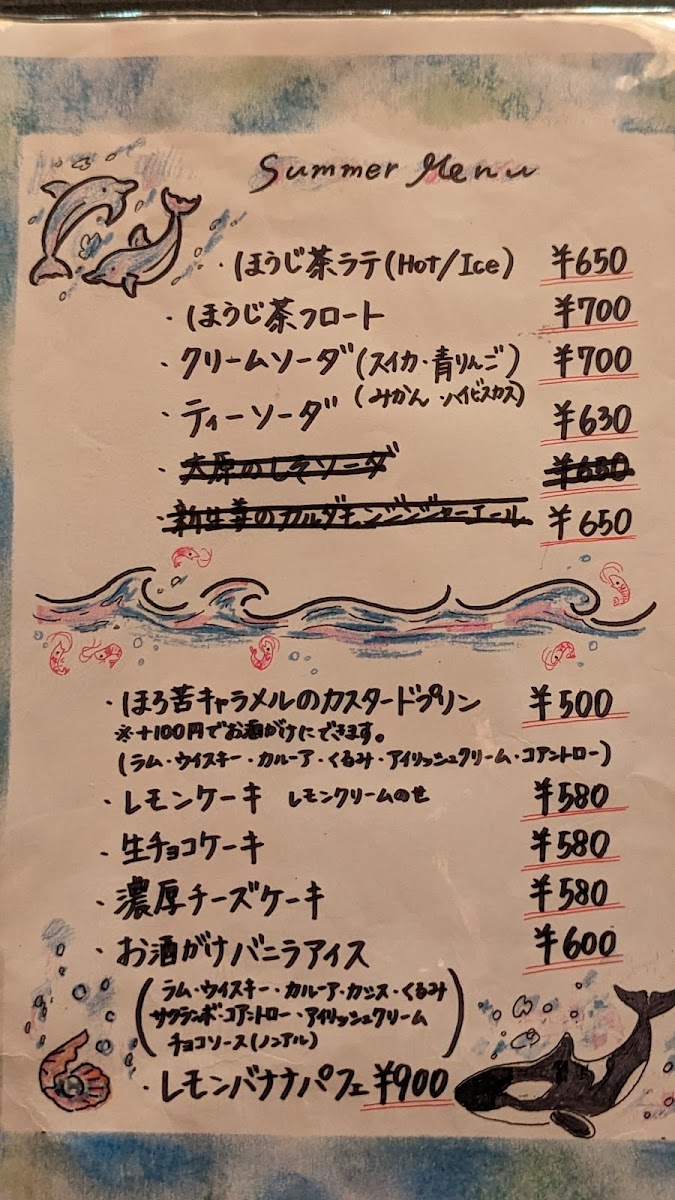 Summer Menu
・ほうじ茶ラテ(Hot/Ice) ¥650
・ほうじ茶フロート ¥700
・クリームソーダ(スイカ・青りんご) ¥700
・ティーソーダ(みかん・ハイビスカス) ¥630
・大原のしそソーダ ¥650
・新生姜のカルダモンジンジャーエール ¥650
・ほろ苦キャラメルのカスタードプリン ¥500
※+100円でお酒がけにできます。
(ラム・ウイスキー・カルーア・くるみ・アイリッシュクリーム・コアントロー)
・レモンケーキ レモンクリームのせ ¥580
・生チョコケーキ ¥580
・濃厚チーズケーキ ¥580
・お酒がけバニラアイス ¥600
(ラム・ウイスキー・カルーア・カシス・くるみ
サクランボ・コアントロー・アイリッシュクリーム
チョコソース(ノンアル))
・レモンバナナパフェ ¥900